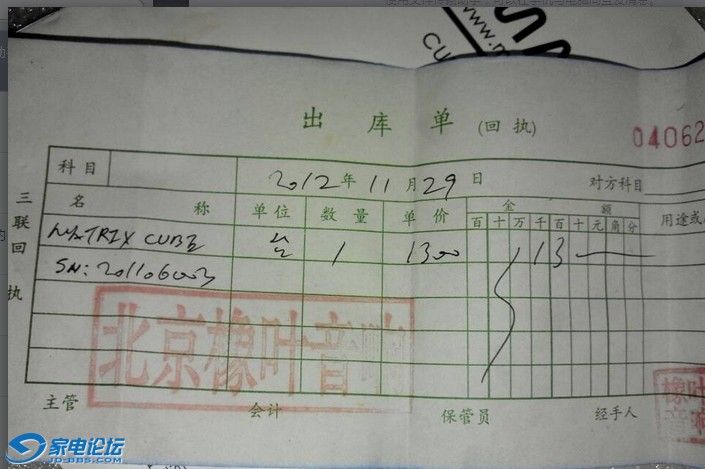 出 库 单 (回 执)
04062
科 目
2012 年 11 月 29 日
对方科目
三联回执
名 称 单 位 数 量 单 价 金 额 用途或
百 十 万 千 百 十 元 角 分
MATRIX CUBE 台 1 1300 1 3
SN: 201106003
北京橡叶音响
橡叶
音响
主管 会计 保管员 经手人
家电论坛
JD-BBS.COM